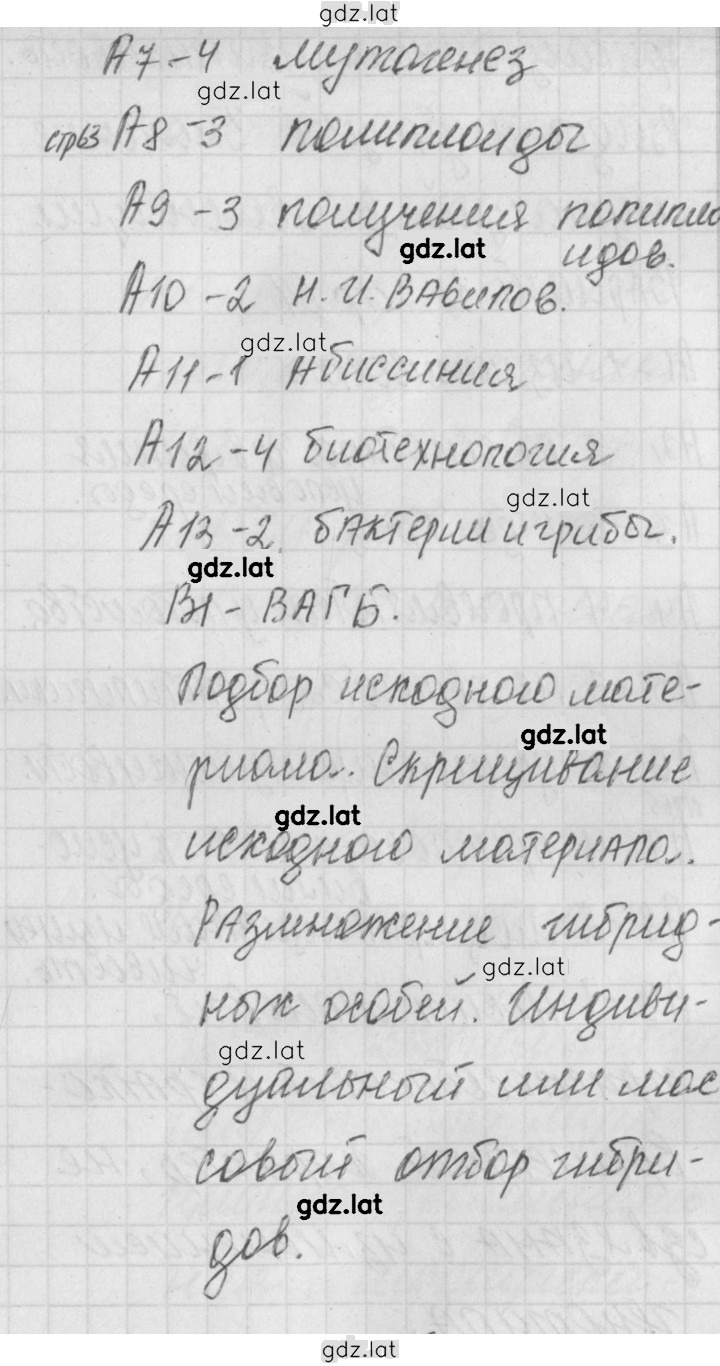 gdz.lat
А7-4 мутагенез
gdz.lat
стр63 А8-3 полиплоиды
А9-3 получения полипло
gdz.lat идов.
А10-2 Н.И.Вавилов.
gdz.lat
А11-1 Абиссиния
А12-4 биотехнология
gdz.lat
А13-2. бактерии и грибы.
gdz.lat
В1-ВАГБ.
Подбор исходного мате-
gdz.lat
риала. Скрещивание
gdz.lat
исходного материала.
Размножение гибрид-
gdz.lat
ных особей. Индиви-
gdz.lat
дуальный или мас
совый отбор гибри-
gdz.lat
дов.
gdz.lat